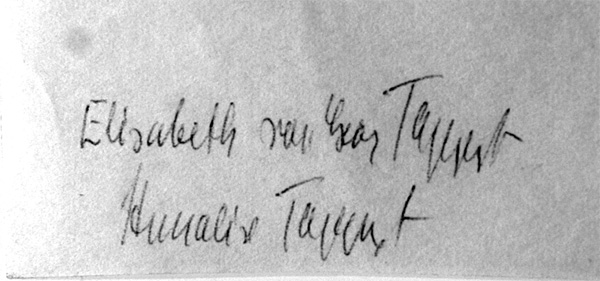 Elisabeth von Georg Tappert
Annalise Tappert